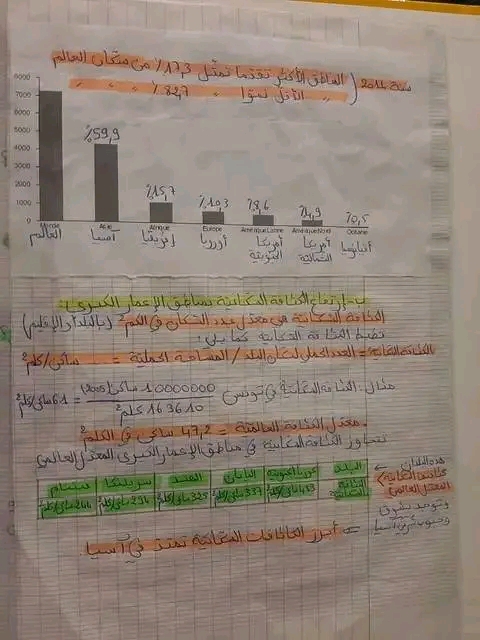 سنة 2014 ( المناطق الأكثر تقدما تمثل 17,3٪ من سكان العالم
" الأقل نموا " 82,7٪ " " "
8000
7000
6000
5000
4000
3000
2000
1000
0
59,9٪
15,7٪
10,3٪
8,6٪
4,9٪
0,5٪
Monde Asie Afrique Europe Amérique Latine Amérique Nord Océanie
العالم آسيا إفريقيا أوروبا أمريكا الجنوبية أمريكا الشمالية أقيانوسيا
ب- ارتفاع الكثافة السكانية بمناطق الإعمار الكبرى:
الكثافة السكانية هي معدل عدد السكان في الكم² (بالبلد أو الإقليم)
تضبط الكثافة السكانية كما يلي:
الكثافة السكانية = العدد الجملي لسكان البلد / المساحة الجملية = ساكن/كلم²
مثال: الكثافة السكانية في تونس 10000000 ساكن (2005) / 163610 كلم² = 61 ساكن/كلم²
معدل الكثافة العالمية = 47,2 ساكن في الكلم²
تتجاوز الكثافة السكانية في مناطق الإعمار الكبرى المعدل العالمي
البلد كوريا الجنوبية اليابان الهند سريلانكا فيتنام
الكثافة السكانية 453 ساكن/كلم² 337 ساكن/كلم² 325 ساكن/كلم² 294 ساكن/كلم² 244 ساكن/كلم²
هذه البلدان
كثافتها السكانية >
المعدل العالمي
وتوجد بشرق
وجنوب شرقي آسيا
⇐ أبرز الكثافات السكانية تمتد في آسيا